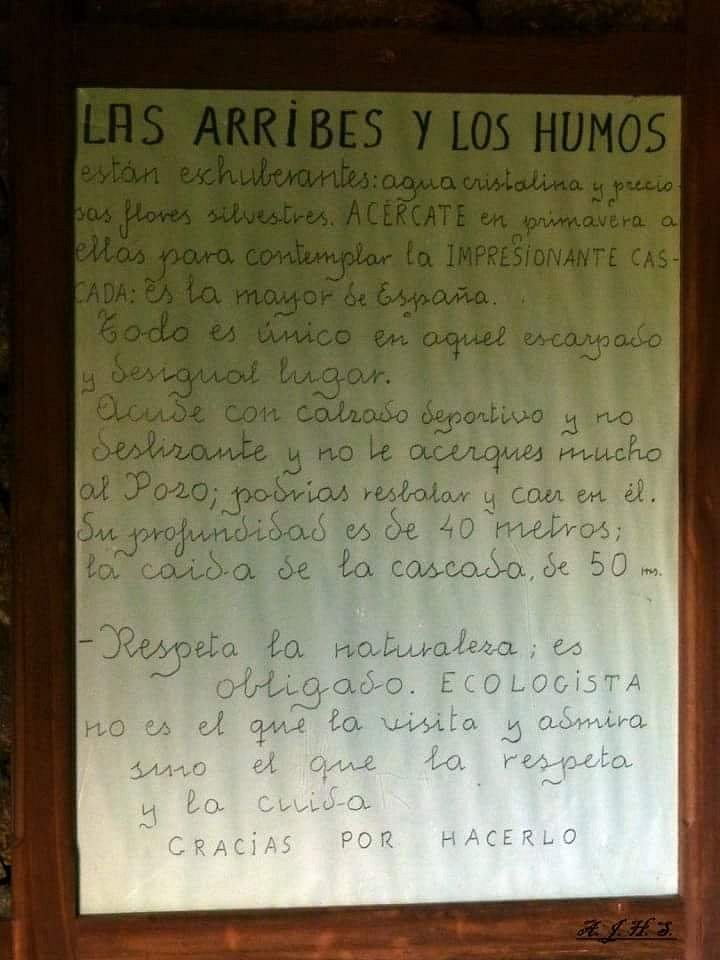 LAS ARRIBES Y LOS HUMOS
están exhuberantes: agua cristalina y precio-
sas flores silvestres. ACÉRCATE en primavera a
ellas para contemplar la IMPRESIONANTE CAS-
CADA: es la mayor de España.
Todo es único en aquel escarpado
y desigual lugar.
Acude con calzado deportivo y no
deslizante y no te acerques mucho
al Pozo; podrías resbalar y caer en él.
Su profundidad es de 40 metros;
la caida de la cascada, de 50 ms.
- Respeta la naturaleza; es
obligado. ECOLOGISTA
no es el que la visita y admira
sino el que la respeta
y la cuida
GRACIAS POR HACERLO
A. J. H. S.